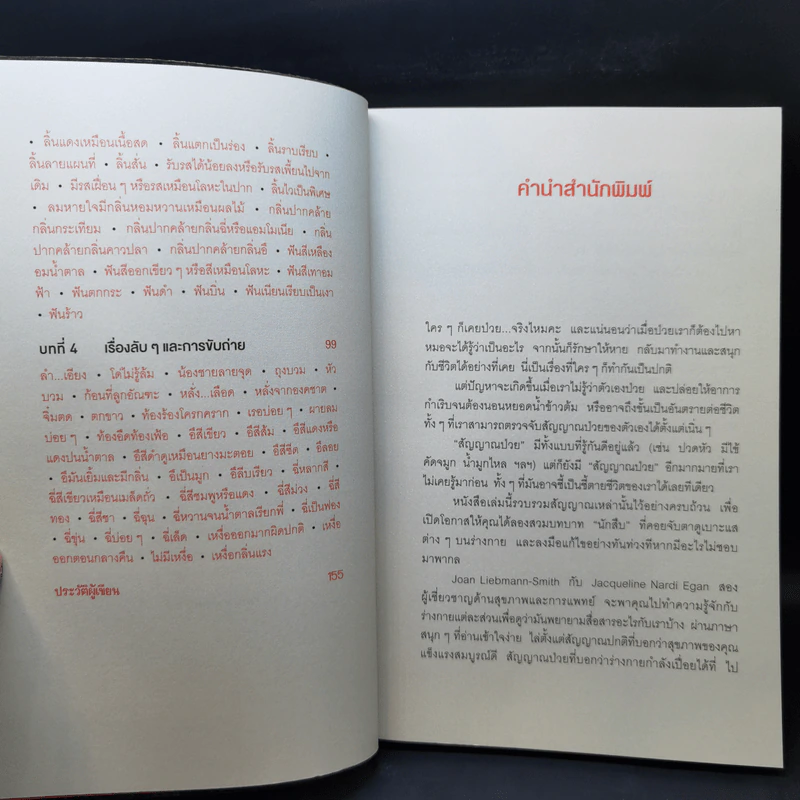 • ลิ้นแดงเหมือนเนื้อสด • ลิ้นแตกเป็นร่อง • ลิ้นราบเรียบ •
ลิ้นลายแผนที่ • ลิ้นสั่น • รับรสได้น้อยลงหรือรับรสเพี้ยนไปจาก
เดิม • มีรสเฝื่อน ๆ หรือรสเหมือนโลหะในปาก • ลิ้นไวเป็นพิเศษ
• ลมหายใจมีกลิ่นหอมหวานเหมือนผลไม้ • กลิ่นปากคล้าย
กลิ่นกระเทียม • กลิ่นปากคล้ายกลิ่นฉี่หรือแอมโมเนีย • กลิ่น
ปากคล้ายกลิ่นคาวปลา • กลิ่นปากคล้ายกลิ่นอึ • ฟันสีเหลือง
อมน้ำตาล • ฟันสีออกเขียว ๆ หรือสีเหมือนโลหะ • ฟันสีเทาอม
ฟ้า • ฟันตกกระ • ฟันดำ • ฟันบิ่น • ฟันเนียนเรียบเป็นเงา
• ฟันร้าว
บทที่ 4 เรื่องลับ ๆ และการขับถ่าย 99
ลำ...เอียง • โด่ไม่รู้ล้ม • น้องชายลายจุด • ถุงบวม • หัว
บวม • ก้อนที่ลูกอัณฑะ • หลั่ง...เลือด • หลั่งจากองคชาต •
จิ๋มตด • ตกขาว • ท้องร้องโครกคราก • เรอบ่อย ๆ • ผายลม
บ่อย ๆ • ท้องอืดท้องเฟ้อ • อึสีเขียว • อึสีส้ม • อึสีแดงหรือ
แดงปนน้ำตาล • อึสีดำดูเหมือนยางมะตอย • อึสีซีด • อึลอย
• อึมันเยิ้มและมีกลิ่น • อึเป็นมูก • อึลีบเรียว • ฉี่หลากสี •
ฉี่สีเขียวเหมือนเมล็ดถั่ว • ฉี่สีชมพูหรือแดง • ฉี่สีม่วง • ฉี่สี
ทอง • ฉี่สีชา • ฉี่ฉุน • ฉี่หวานจนน้ำตาลเรียกพี่ • ฉี่เป็นฟอง
• ฉี่ขุ่น • ฉี่บ่อย ๆ • ฉี่เล็ด • เหงื่อออกมากผิดปกติ • เหงื่อ
ออกตอนกลางคืน • ไม่มีเหงื่อ • เหงื่อกลิ่นแรง
ประวัติผู้เขียน 155
คำนำสำนักพิมพ์
ใคร ๆ ก็เคยป่วย...จริงไหมคะ และแน่นอนว่าเมื่อป่วยเราก็ต้องไปหา
หมอจะได้รู้ว่าเป็นอะไร จากนั้นก็รักษาให้หาย กลับมาทำงานและสนุก
กับชีวิตได้อย่างที่เคย นี่เป็นเรื่องที่ใคร ๆ ก็ทำกันเป็นปกติ
แต่ปัญหาจะเกิดขึ้นเมื่อเราไม่รู้ว่าตัวเองป่วย และปล่อยให้อาการ
กำเริบจนต้องนอนหยอดน้ำข้าวต้ม หรืออาจถึงขั้นเป็นอันตรายต่อชีวิต
ทั้ง ๆ ที่เราสามารถตรวจจับสัญญาณป่วยของตัวเองได้ตั้งแต่เนิ่น ๆ
“สัญญาณป่วย” มีทั้งแบบที่รู้กันดีอยู่แล้ว (เช่น ปวดหัว มีไข้
คัดจมูก น้ำมูกไหล ฯลฯ) แต่ก็ยังมี “สัญญาณป่วย” อีกมากมายที่เรา
ไม่เคยรู้มาก่อน ทั้ง ๆ ที่มันอาจชี้เป็นชี้ตายชีวิตของเราได้เลยทีเดียว
หนังสือเล่มนี้รวบรวมสัญญาณเหล่านั้นไว้อย่างครบถ้วน เพื่อ
เปิดโอกาสให้คุณได้ลองสวมบทบาท “นักสืบ” ที่คอยจับตาดูเบาะแส
ต่าง ๆ บนร่างกาย และลงมือแก้ไขอย่างทันท่วงทีหากมีอะไรไม่ชอบ
มาพากล
Joan Liebmann-Smith กับ Jacqueline Nardi Egan สอง
ผู้เชี่ยวชาญด้านสุขภาพและการแพทย์ จะพาคุณไปทำความรู้จักกับ
ร่างกายแต่ละส่วนเพื่อดูว่ามันพยายามสื่อสารอะไรกับเราบ้าง ผ่านภาษา
สนุก ๆ ที่อ่านเข้าใจง่าย ไล่ตั้งแต่สัญญาณปกติที่บอกว่าสุขภาพของคุณ
แข็งแรงสมบูรณ์ดี สัญญาณป่วยที่บอกว่าร่างกายกำลังเปื่อยได้ที่ ไป